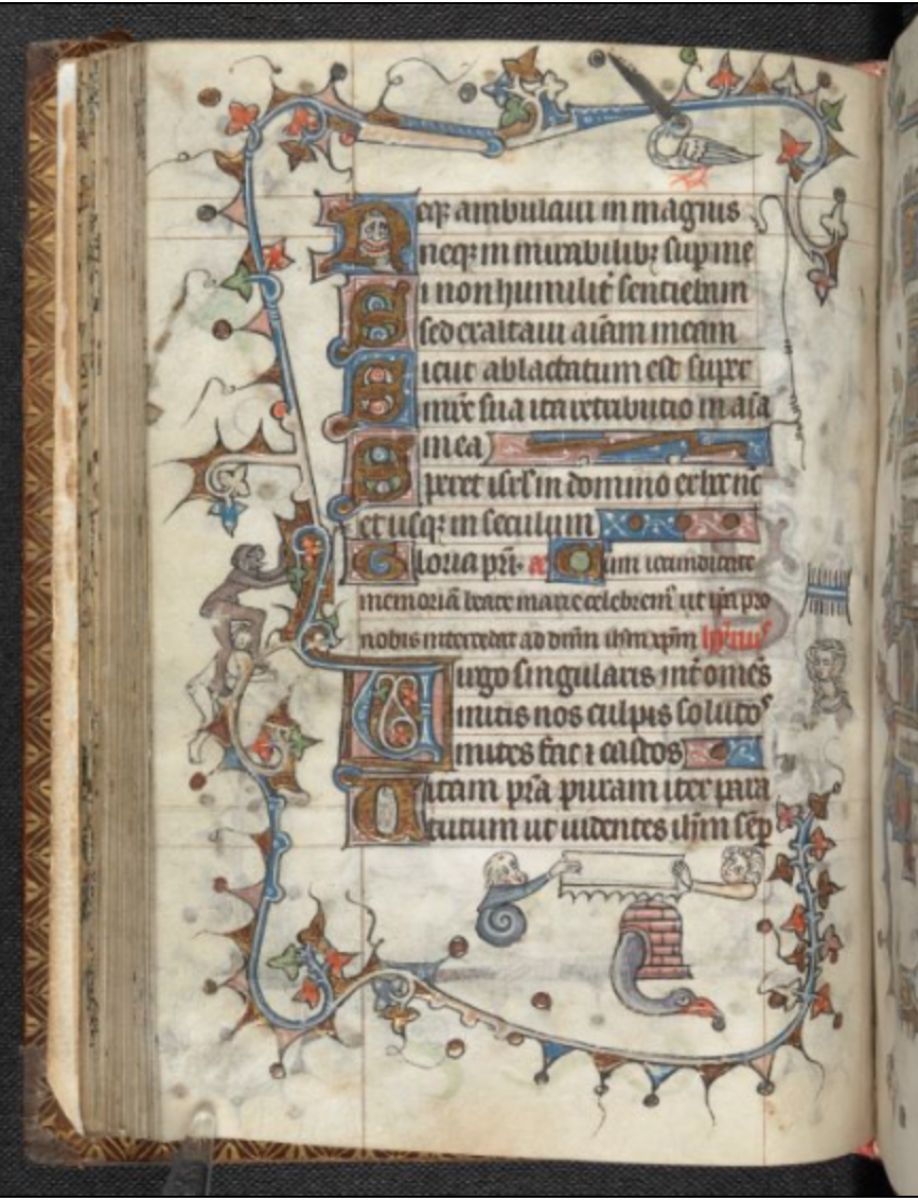 Neq; ambulaui in magnis
neq; in mirabilib; sup me
Si non humilit̉ sentiebam
sed exaltaui aīam meam
Sicut ablactatum est super
mr̄e sua ita retributio in aīa
mea
Speret isrl̄ in domino ex hoc nc̄
et usq; in seculum
Gloria pr̄i. a Cum iocunditate
memoriā beate marie celebrem᾿ ut ip̄a pro
nobis intercedat ad dn̄m ih̄m xp̄m hymnus
Uirgo singularis int̉ om̄es
mitis nos culpis soluto᾿
mites fac ⁊ castos
Uitam pr̄a puram iter para
tutum ut uidentes ih̄m sēp